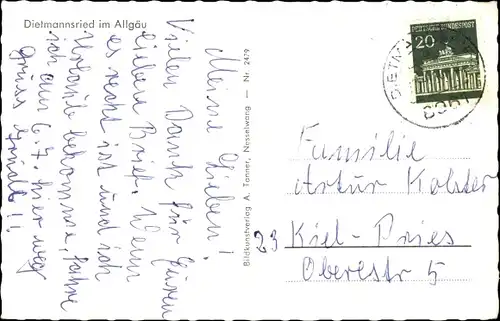 Dietmannsried im Allgäu
Meine Lieben!
Vielen Dank für Euren
lieben Brief. Wenn
es recht ist und ich
Urlaub bekomme, fahre
ich am 6.7. hier weg
Bildkunstverlag A. Tanner, Nesselwang — Nr. 2479
DEUTSCHE BUNDESPOST
20
Familie
Artur Kolster
23 Kiel-Pries
Oberestr 5